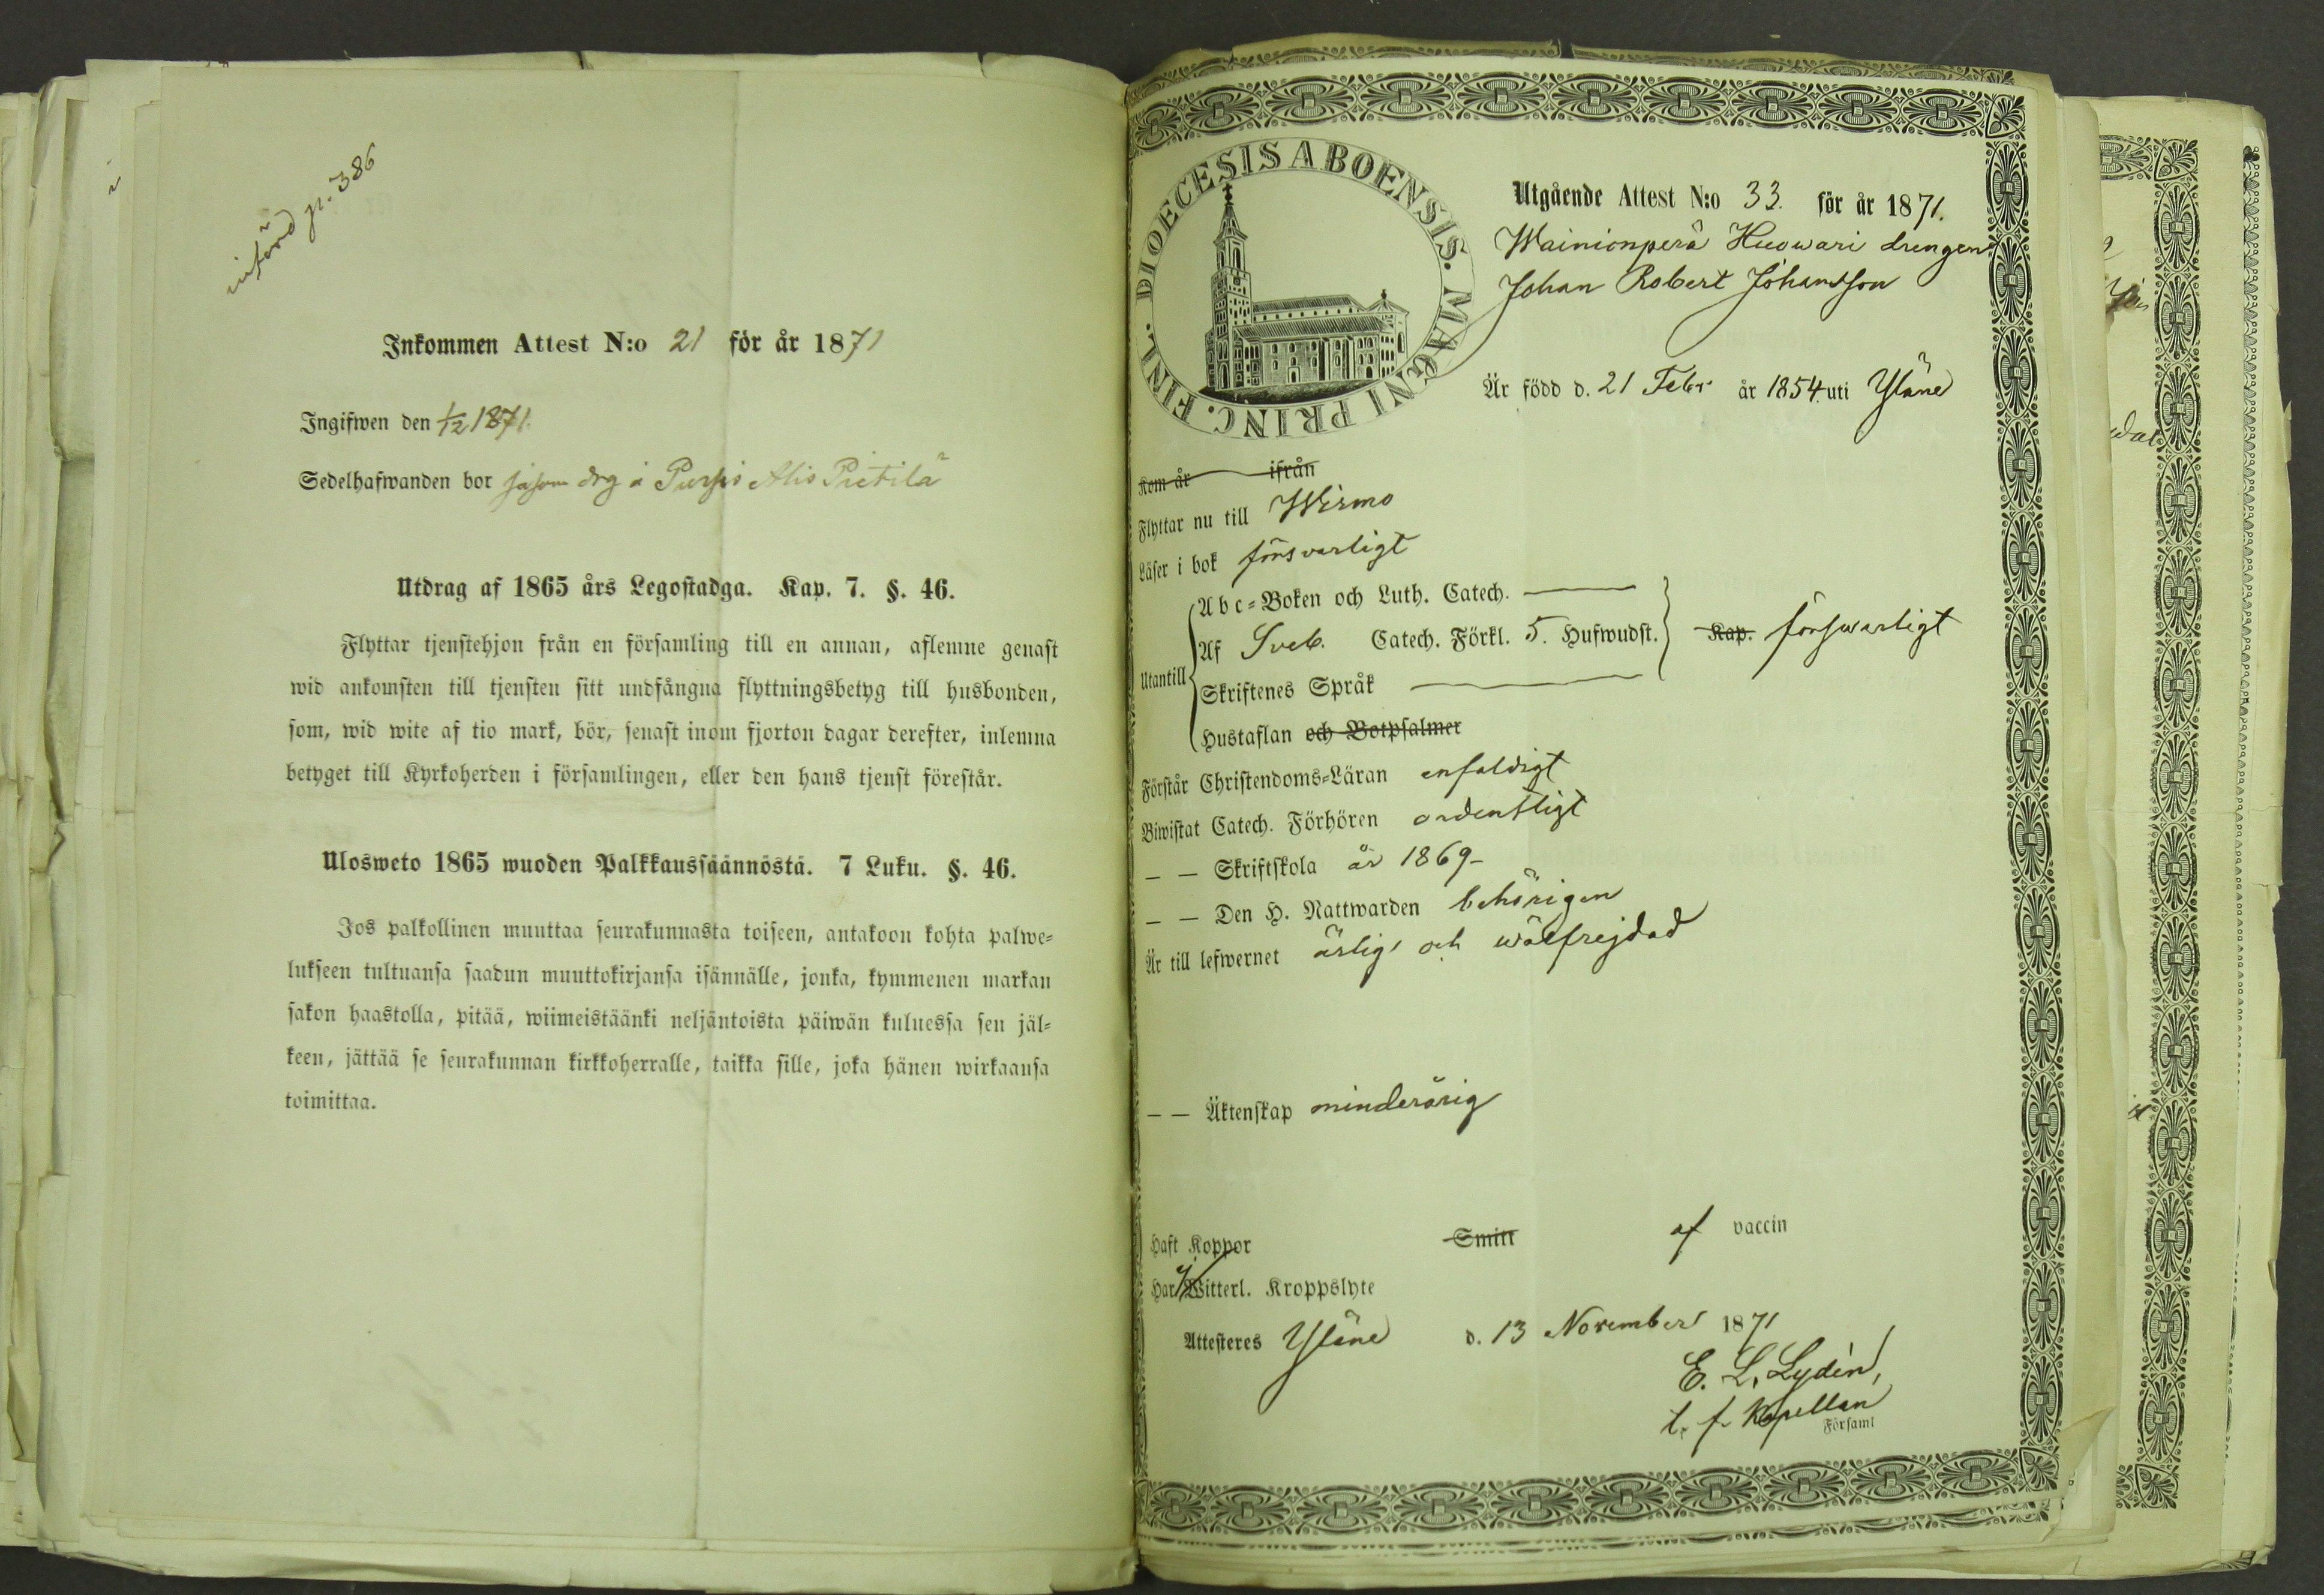 införd p. 386
Inkommen Attest N:o 21 för år 1871
Ingifwen den 1/2 1871.
Sedelhafwanden bor såsom drg i Alis Pietilä
Utdrag af 1865 års Legostadga. Kap. 7. §. 46.
Flyttar tjenstehjon från en församling till en annan, aflemne genast
wid ankomsten till tjensten sitt undfångna flyttningsbetyg till husbonden,
som, wid wite af tio mark, bör, senast inom fjorton dagar derefter, inlemna
betyget till Kyrkoherden i församlingen, eller den hans tjenst förestår.
Ulosweto 1865 wuoden Palkkaussäännöstä. 7 Luku. §. 46.
Jos palkollinen muuttaa seurakunnasta toiseen, antakoon kohta palwe=
lukseen tultuansa saadun muuttokirjansa isännälle, jonka, kymmenen markan
sakon haastolla, pitää, wiimeistäänki neljäntoista päiwän kuluessa sen jäl=
keen, jättää se seurakunnan kirkkoherralle, taikka sille, joka hänen wirkaansa
toimittaa.
DIOECESIS ABOENSIS. MAGNI PRINC. FINL.
Utgående Attest N:o 33. för år 1871.
Wainionperä Huowari drengen
Johan Robert Johansson
Är född d. 21 Febr år 1854 uti Yläne
Kom år ifrån
Flyttar nu till Wirmo
Läser i bok försvarligt
Utantill
Abc=Boken och Luth. Catech. ———
Af Sveb. Catech. Förkl. 5. Hufwudst. Kap. förswarligt
Skriftenes Språk ———
Hustaflan och Botpsalmer
Förstår Christendoms=Läran enfaldigt
Biwistat Catech. Förhören ordentligt
— — Skriftskola år 1869-
— — Den H. Nattwarden behörigen
Är till lefwernet ärlig och wälfrejdad
— — Äktenskap minderårig
Haft Koppor Smitt af vaccin
Har Witterl. Kroppslyte
Attesteres Yläne d. 13 November 1871
E. L. Lydén,
t. f. Kapellan
Församl